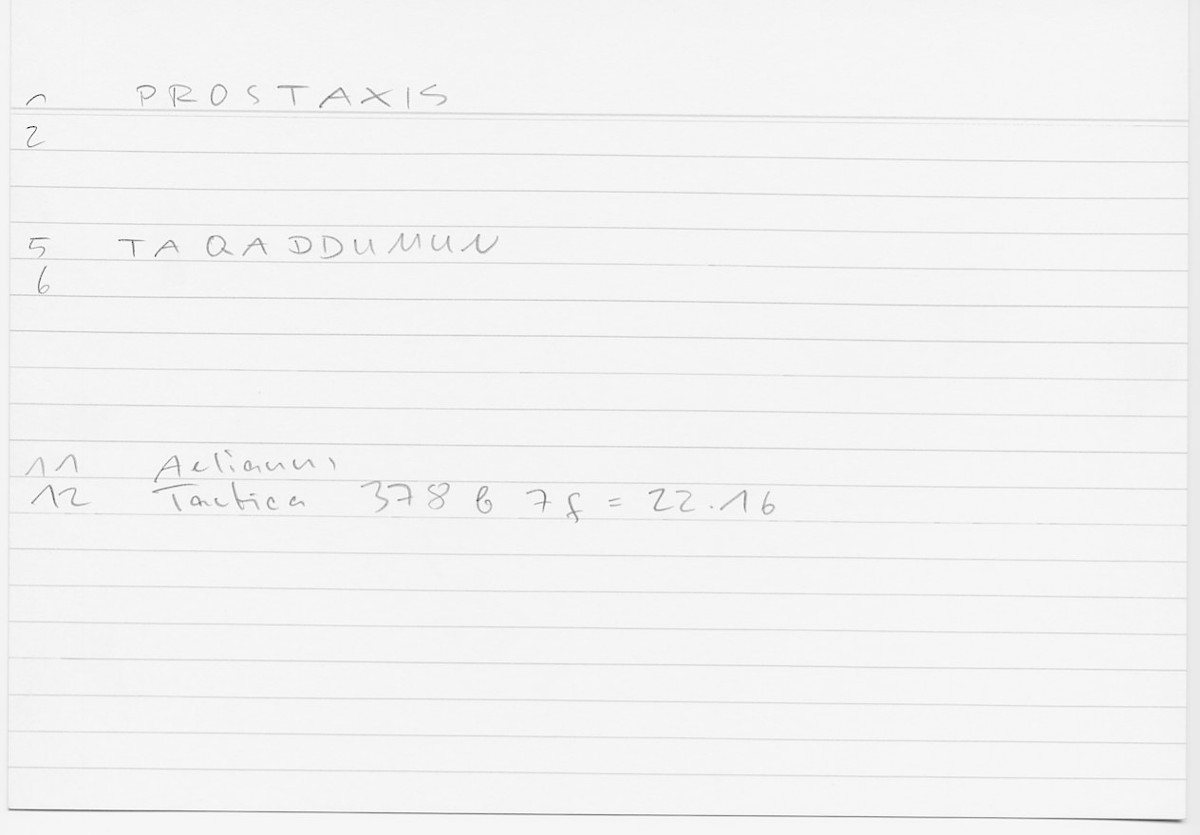 1 PROSTAXIS
2
5 TAQADDUMUN
6
11 Aelianus
12 Tactica 378 b 7 f = 22.16